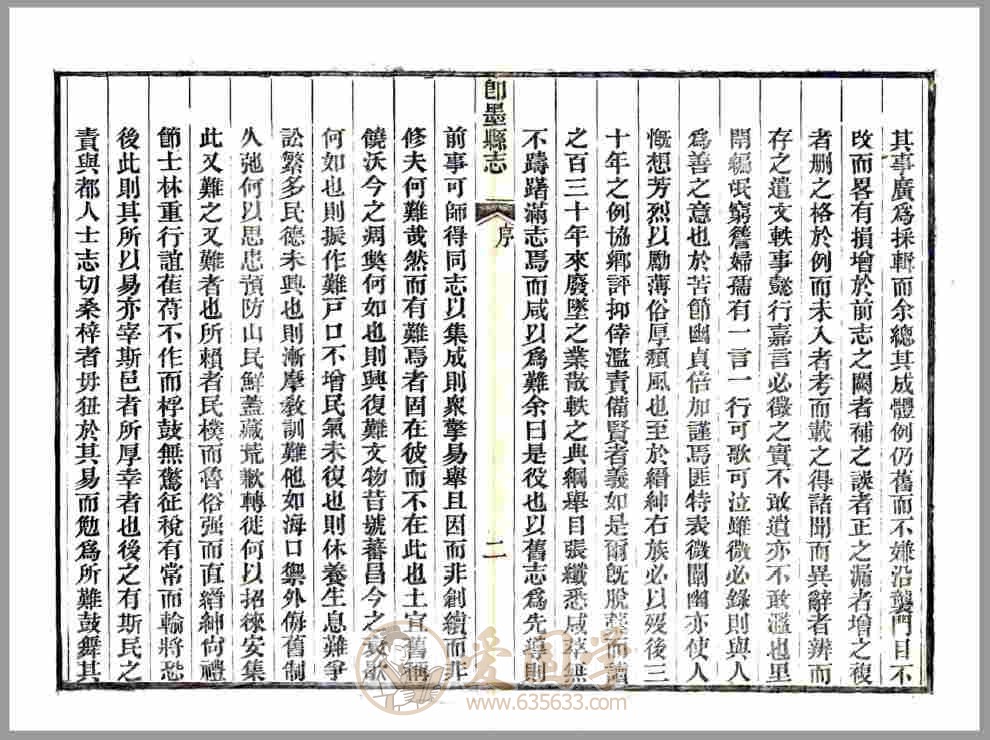 其事廣爲採輯而余總其成體例仍舊而不嫌沿襲門目不
改而畧有損增於前志之闕者補之誤者正之漏者增之複
者删之格於例而未入者考而載之得諸聞而異辭者辨而
存之遺文軼事懿行嘉言必徵之實不敢遺亦不敢濫也里
閈編氓窮簷婦孺有一言一行可歌可泣雖微必錄則與人
爲善之意也於苦節幽貞倍加謹焉匪特表微闡幽亦使人
慨想芳烈以勵薄俗厚頽風也至於縉紳右族必以歿後三
十年之例協鄉評抑倖濫責備賢者義如是爾旣脫稾而讀
之百三十年來廢墜之業散軼之典綱舉目張纖悉咸萃無
不躊躇滿志焉而咸以爲難余曰是役也以舊志爲先導則
卽墨縣志
序
二
前事可師得同志以集成則衆擎易舉且因而非創續而非
修夫何難哉然而有難焉者固在彼而不在此也土宜舊稱
饒沃今之凋獘何如也則興復難文物昔號蕃昌今之衰歇
何如也則振作難戸口不增民氣未復也則休養生息難爭
訟繁多民德未興也則漸摩敎訓難他如海口禦外侮舊制
久弛何以思患預防山民鮮蓋藏荒歉轉徙何以招徠安集
此又難之又難者也所賴者民樸而魯俗强而直縉紳尙禮
節士林重行誼萑苻不作而桴鼓無驚征稅有常而輸將恐
後此則其所以易亦宰斯邑者所厚幸者也後之有斯民之
責與都人士志切桑梓者毋狃於其易而勉爲所難鼓舞其
爱国学
www.635633.com